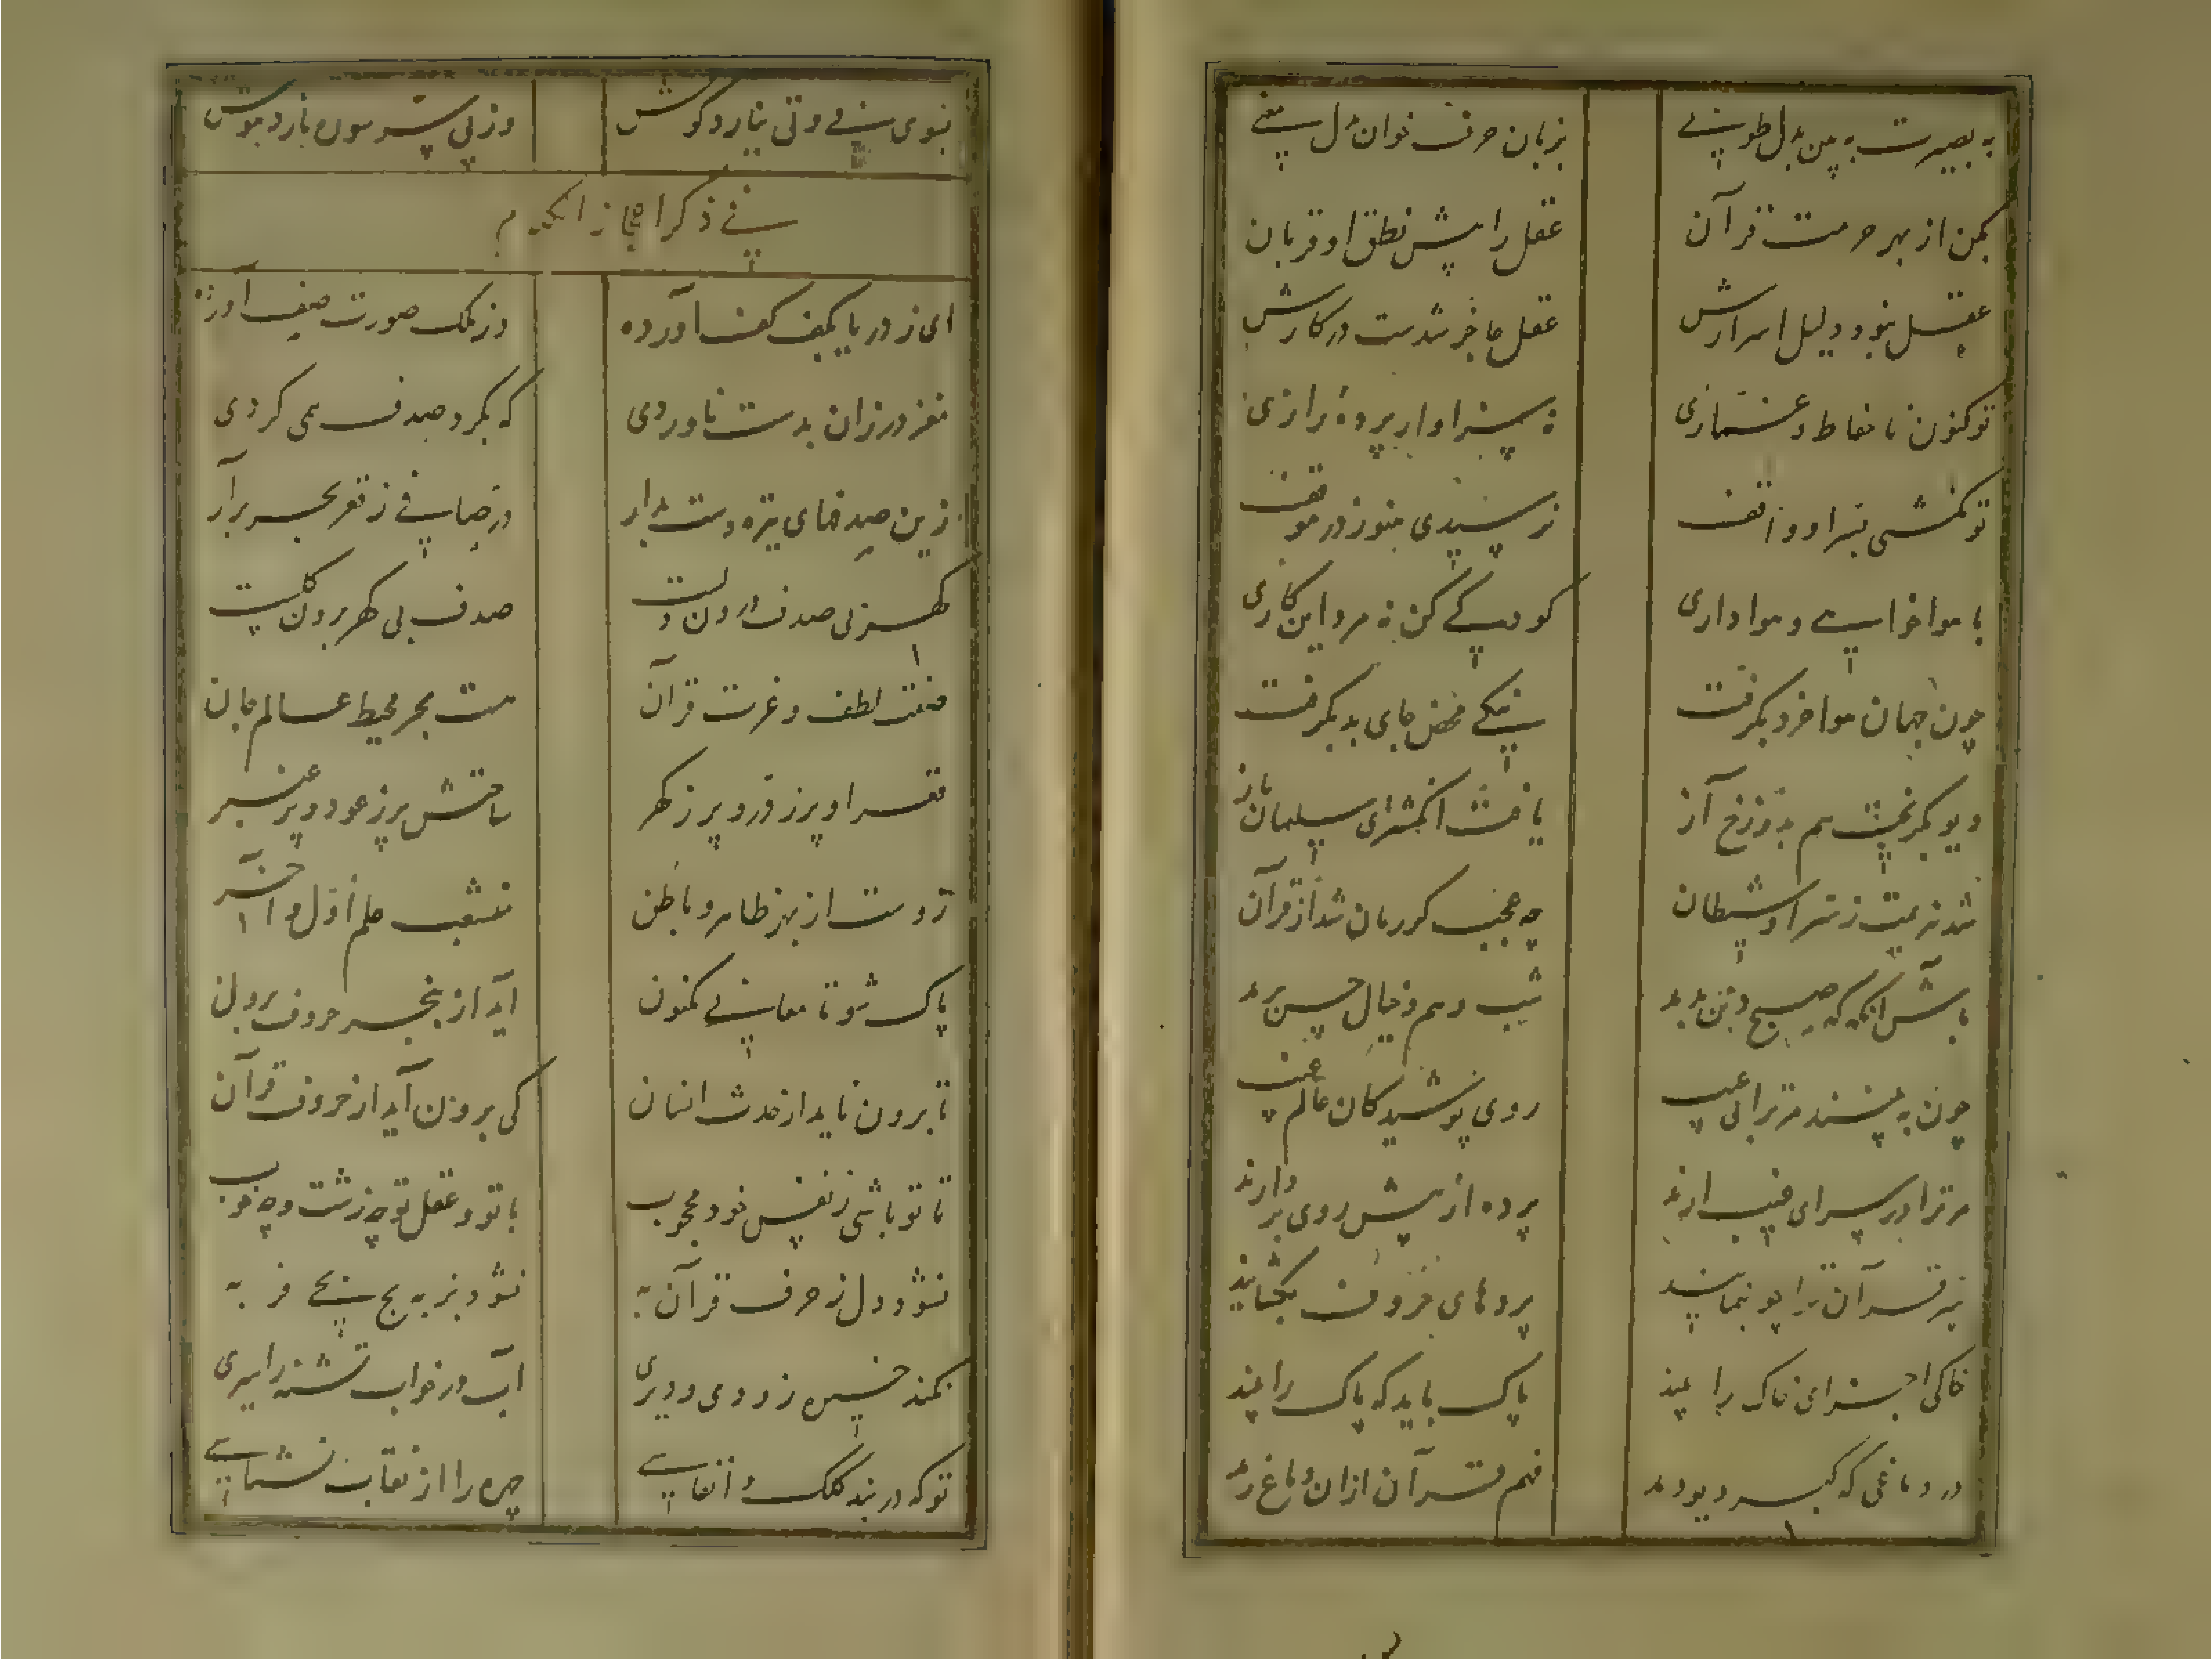 به بصیرت به من بدل طوبی بزبان حرف خوان بدل معنی
بکن از بهر حرمت قرآن عقل را پیش نطق او قربان
عقل نبود دلیل اسرارش عقل عاجز شدست در کارش
تو کنون نا حفاظ و غمازی نه سزاوار پرده رازی
تو نگشتی بسر او واقف نرسیدی هنوز در موقف
با هوا خواهی و هواداری کودکی کن نه مرد این کاری
چون جهان هوا خرد بگرفت نیکی محض جای بد بگرفت
دیو بگریخت هم به دوزخ آز یافت انگشتری سلیمان باز
شد هزیمت ز سر او شیطان چه عجب گر رمان شد از قرآن
باش آنگه که صبح دین بدمد شب وهم و خیال حس برمد
چون ببینند مر ترا بی عیب روی پوشیدگان عالم غیب
مر ترا در سرای غیب آرند پرده از پیش روی بردارند
سر قرآن ترا چو بنمایند پردهای حروف بگشایند
خاکی اجزای خاک را بیند پاک باید که پاک را بیند
در دماغی که کبر دیو دمد فهم قرآن ازان دماغ رمد
وز پی سر سوره نارد هوش
فی ذکر اعجاز الکلام
ای ز دریا بکف کف آورده وز ملک صورت صف آورده
مغز در زان بدست ناوردی که بگرد صدف همی گردی
زین صدفهای تیره دست بدار در صافی ز قعر بحر برآر
گهر بی صدف درون دلست صدف بی گهر برون گلست
صفت لطف و عزت قرآن هست بحر محیط عالم جان
قعر او پر ز در و پر ز گهر ساحلش پر ز عود و پر عنبر
زوست از بهر ظاهر و باطن منشعب علم اول و آخر
پاک شو تا معانی مکنون آید از پنجره حروف برون
تا برون ناید از حدث انسان کی برون آید از حروف قرآن
تا تو باشی ز نفس خود محجوب با تو و عقل تو چه زشت و چه خوب
نشود دل ز حرف قرآن به نشود بز به پچ پچی فربه
نکند خیره زودی و دیری آب در خواب تشنه را سیری
تو که در بند کلک و انقاسی چهره را از نقاب نشناسی